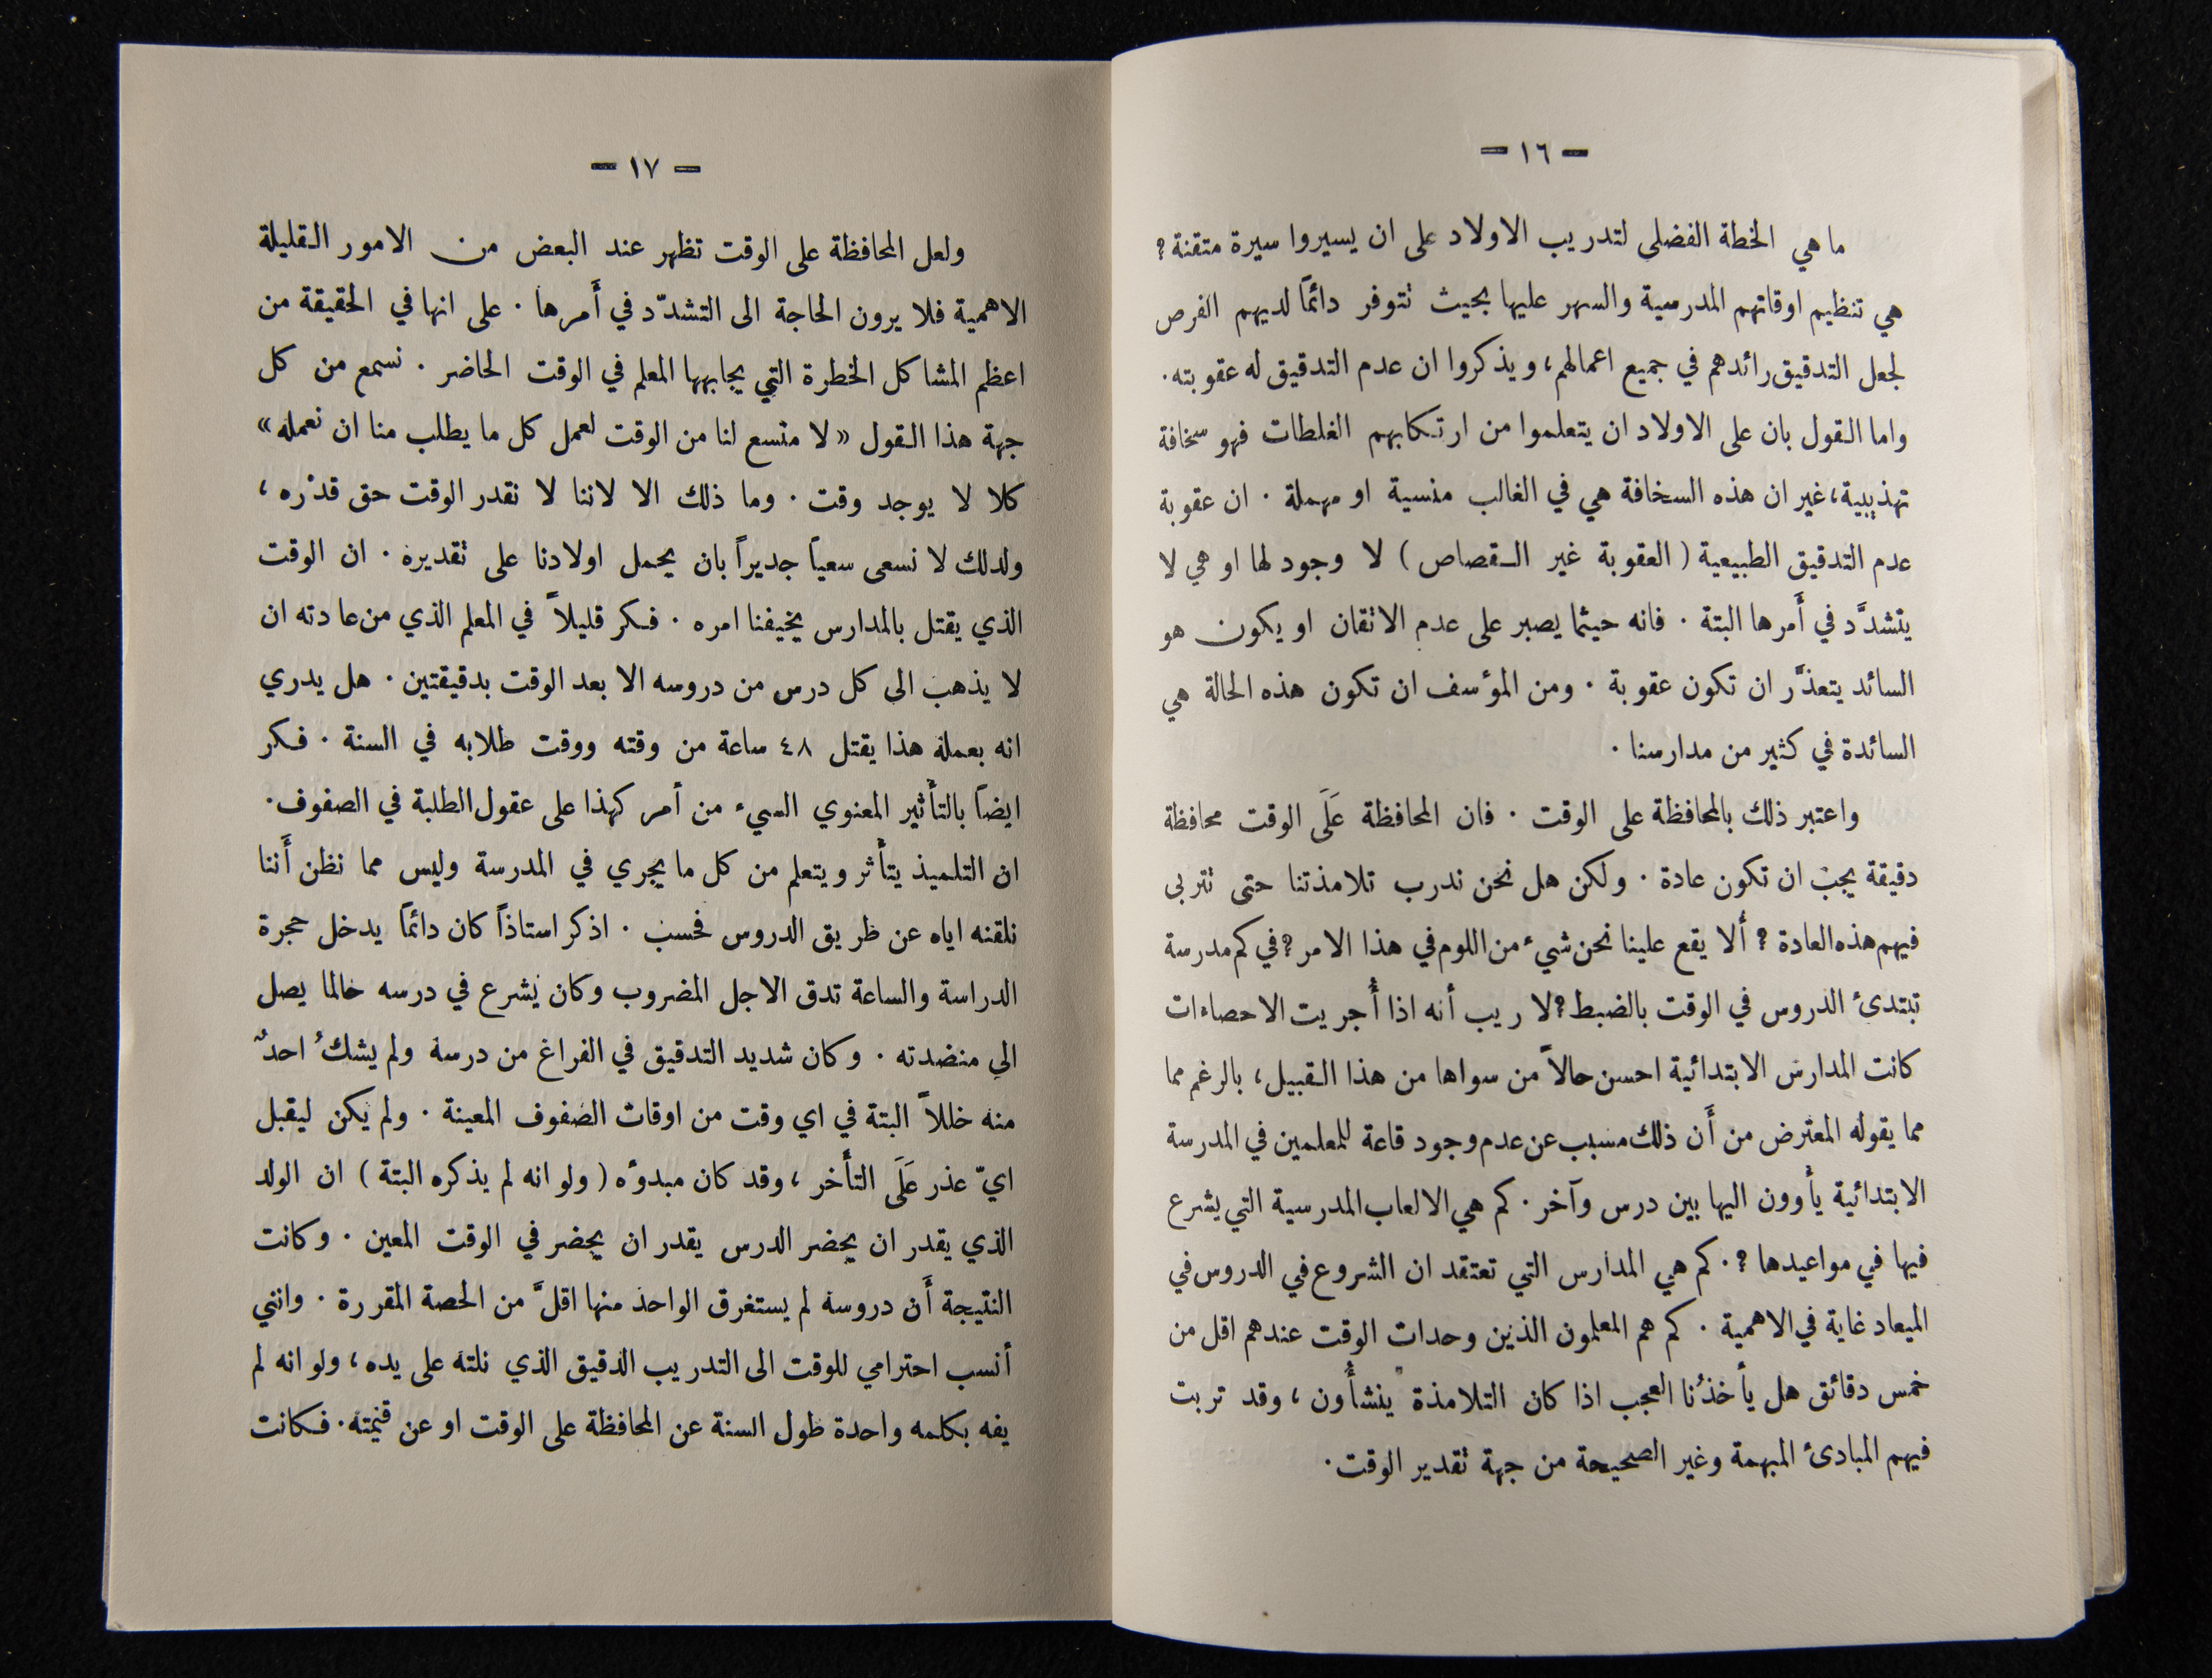 — ١٦ —
ما هي الخطة الفضلى لتدريب الاولاد على ان يسيروا سيرة متقنة ؟
هي تنظيم اوقاتهم المدرسية والسهر عليها بحيث تتوفر دائمًا لديهم الفرص
لجعل التدقيق رائدهم في جميع اعمالهم، ويذكروا ان عدم التدقيق له عقوبته.
واما القول بان على الاولاد ان يتعلموا من ارتكابهم الغلطات فهو سخافة
تهذيبية، غير ان هذه السخافة هي في الغالب منسية او مهملة . ان عقوبة
عدم التدقيق الطبيعية ( العقوبة غير القصاص ) لا وجود لها او هي لا
يتشدَّد في أَمرها البتة . فانه حيثما يصبر على عدم الاتقان او يكون هو
السائد يتعذَّر ان تكون عقوبة . ومن المؤسف ان تكون هذه الحالة هي
السائدة في كثير من مدارسنا .
واعتبر ذلك بالمحافظة على الوقت . فان المحافظة عَلَى الوقت محافظة
دقيقة يجب ان تكون عادة . ولكن هل نحن ندرب تلامذتنا حتى تتربى
فيهم هذه العادة ؟ أَلا يقع علينا نحن شيء من اللوم في هذا الامر ؟ في كم مدرسة
تبتدئ الدروس في الوقت بالضبط ؟ لا ريب أنه اذا أُجريت الاحصاءات
كانت المدارس الابتدائية احسن حالاً من سواها من هذا القبيل، بالرغم مما
مما يقوله المعترض من أَن ذلك مسبب عن عدم وجود قاعة للمعلمين في المدرسة
الابتدائية يأوون اليها بين درس وآخر . كم هي الالعاب المدرسية التي يشرع
فيها في مواعيدها ؟ . كم هي المدارس التي تعتقد ان الشروع في الدروس في
الميعاد غاية في الاهمية . كم هم المعلمون الذين وحدات الوقت عندهم اقل من
خمس دقائق هل يأخذُنا العجب اذا كان التلامذة ينشأُون ، وقد تربت
فيهم المبادئ المبهمة وغير الصحيحة من جهة تقدير الوقت .
— ١٧ —
ولعل المحافظة على الوقت تظهر عند البعض من الامور القليلة
الاهمية فلا يرون الحاجة الى التشدّد في أَمرها . على انها في الحقيقة من
اعظم المشاكل الخطرة التي يجابهها المعلم في الوقت الحاضر . نسمع من كل
جهة هذا القول « لا متسع لنا من الوقت لعمل كل ما يطلب منا ان نعمله »
كلا لا يوجد وقت . وما ذلك الا لاننا لا نقدر الوقت حق قدْره ،
ولدلك لا نسعى سعياً جديراً بان يحمل اولادنا على تقديره . ان الوقت
الذي يقتل بالمدارس يخيفنا امره . فكر قليلاً في المعلم الذي من عادته ان
لا يذهب الى كل درس من دروسه الا بعد الوقت بدقيقتين . هل يدري
انه بعمله هذا يقتل ٤٨ ساعة من وقته ووقت طلابه في السنة . فكر
ايضاً بالتأثير المعنوي السيء من أمر كهذا على عقول الطلبة في الصفوف .
ان التلميذ يتأثر ويتعلم من كل ما يجري في المدرسة وليس مما نظن أَننا
نلقنه اياه عن طريق الدروس فحسب . اذكر استاذاً كان دائماً يدخل حجرة
الدراسة والساعة تدق الاجل المضروب وكان يشرع في درسه حالما يصل
الى منضدته . وكان شديد التدقيق في الفراغ من درسه ولم يشكُ احدٌ
منه خللاً البتة في اي وقت من اوقات الصفوف المعينة . ولم يكن ليقبل
ايّ عذر عَلَى التأَخر ، وقد كان مبدؤه ( ولو انه لم يذكره البتة ) ان الولد
الذي يقدر ان يحضر الدرس يقدر ان يحضر في الوقت المعين . وكانت
النتيجة أَن دروسه لم يستغرق الواحد منها اقلَّ من الحصة المقررة . وانني
أنسب احترامي للوقت الى التدريب الدقيق الذي نلته على يده ، ولو انه لم
يفه بكلمه واحدة طول السنة عن المحافظة على الوقت او عن قيمته . فكانت